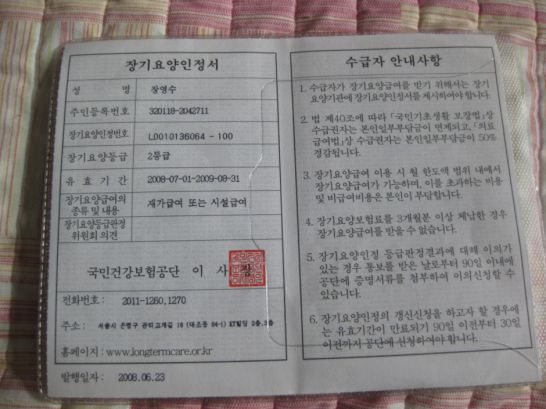 장기요양인정서
성 명 장영수
주민등록번호 320118-2042711
장기요양인정번호 L0010136064 - 100
장기요양등급 2등급
유효기간 2008-07-01~2009-08-31
장기요양급여의
종류 및 내용 재가급여 또는 시설급여
장기요양등급판정
위원회 의견
국민건강보험공단 이 사 장
전화번호 : 2011-1260,1270
주소 : 서울시 은평구 관터고개길 16 (대조동 84-1) KT빌딩 2층,3층
홈페이지 : www.longtermcare.or.kr
발행일자 : 2008.06.23
수급자 안내사항
1. 수급자가 장기요양급여를 받기 위해서는 장기
요양기관에 장기요양인정서를 제시하여야합니다.
2. 법 제40조에 따라 「국민기초생활 보장법」상
수급권자는 본인일부부담금이 면제되고, 「의료
급여법」상 수급권자는 본인일부부담금이 50%
경감됩니다.
3. 장기요양급여 이용 시 월 한도액 범위 내에서
장기요양급여가 가능하며, 이를 초과하는 비용
및 비급여비용은 본인이 부담합니다.
4. 장기요양보험료를 3개월분 이상 체납한 경우
장기요양급여를 받을 수 없습니다.
5. 장기요양인정 등급판정결과에 대해 이의가
있는 경우 통보를 받은 날로부터 90일 이내에
공단에 증명서류를 첨부하여 이의신청할 수
있습니다.
6. 장기요양인정의 갱신신청을 하고자 할 경우에
는 유효기간이 만료되기 90일 이전부터 30일
이전까지 공단에 신청하여야합니다.